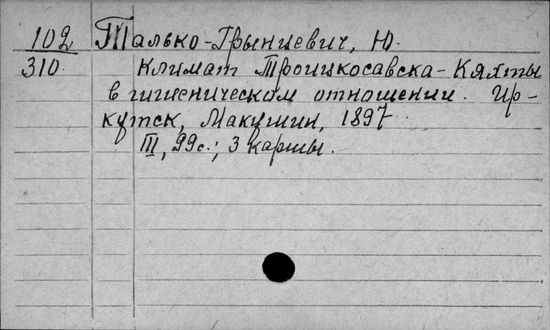 102 Талько-Грынцевич, Ю.
310. Климат Троицкосавска-Кяхты
в гигиеническом отношении. Ир-
кутск, Макушин, 1897.
III, 99с.; 3 карты.